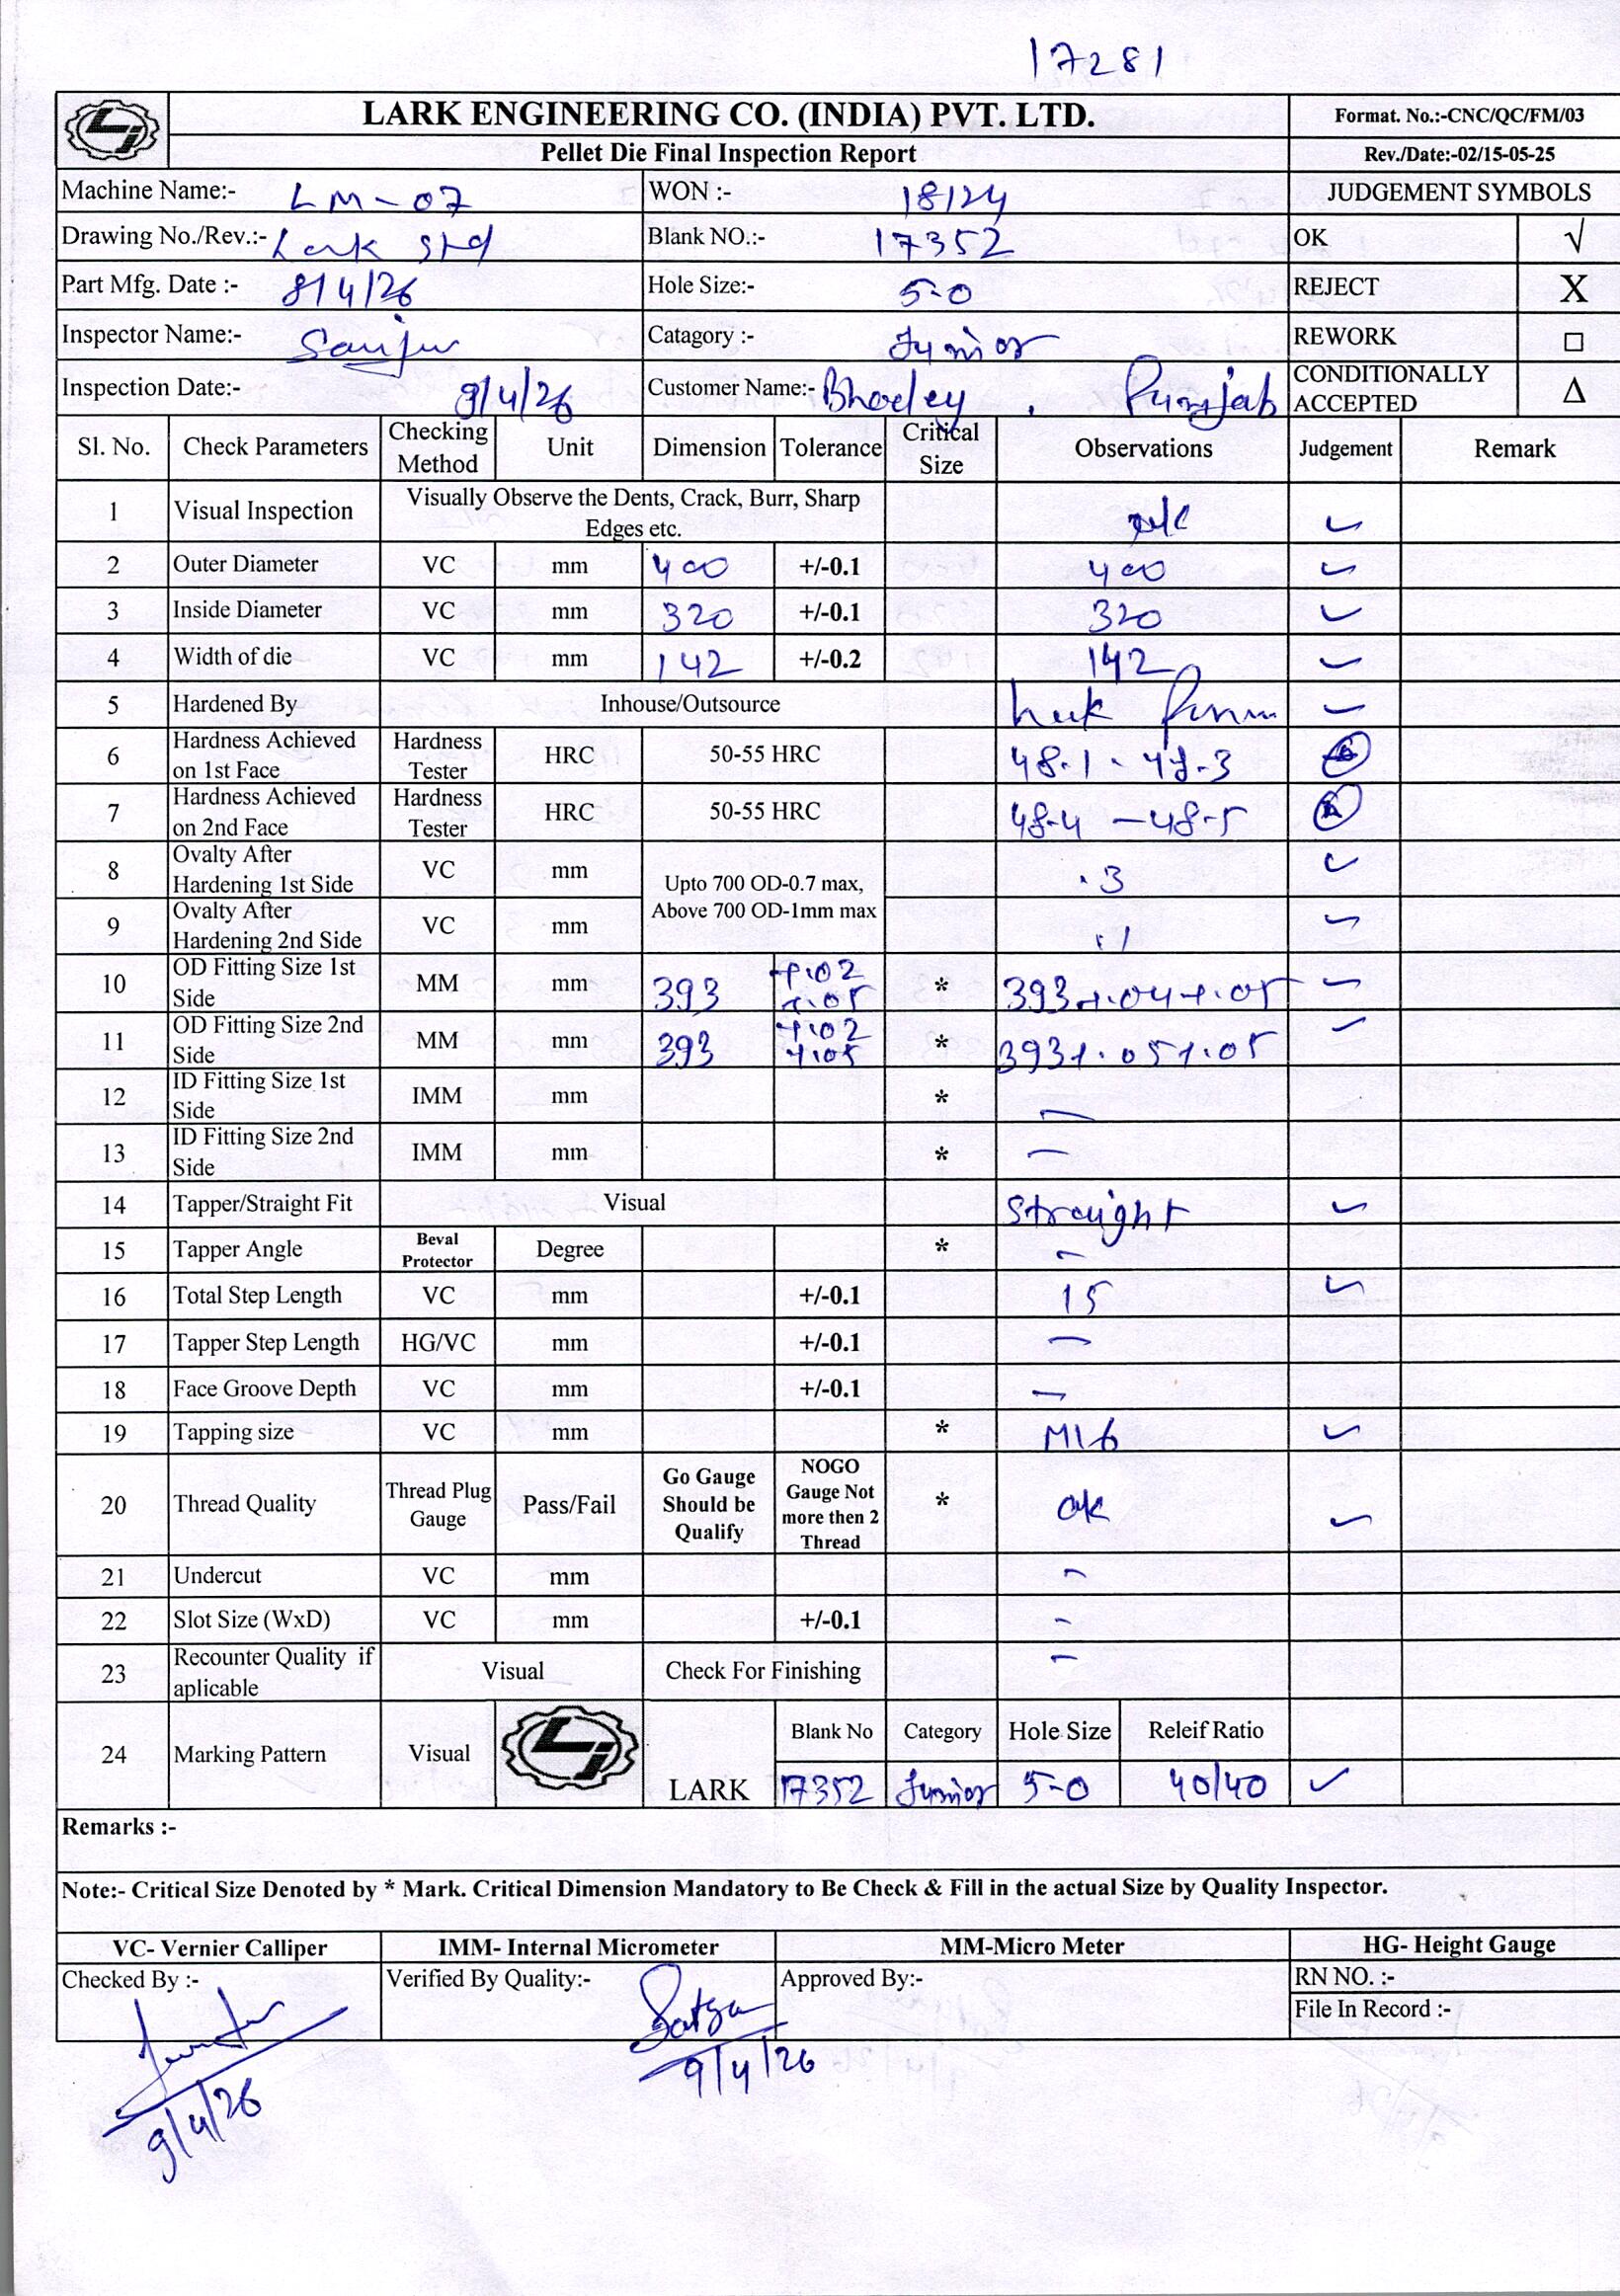 17281
LARK ENGINEERING CO. (INDIA) PVT. LTD.
Format. No.:-CNC/QC/FM/03
Pellet Die Final Inspection Report
Rev./Date:-02/15-05-25
Machine Name:- LM-07 WON :- 18124 JUDGEMENT SYMBOLS
Drawing No./Rev.:- Lark Std Blank NO.:- 17352 OK √
Part Mfg. Date :- 8/4/26 Hole Size:- 5-0 REJECT X
Inspector Name:- Sanju Catagory :- Junior REWORK □
Inspection Date:- 9/4/26 Customer Name:- Punjab CONDITIONALLY ACCEPTED Δ
Sl. No. Check Parameters Checking Method Unit Dimension Tolerance Critical Size Observations Judgement Remark
1 Visual Inspection Visually Observe the Dents, Crack, Burr, Sharp Edges etc. ✓
2 Outer Diameter VC mm 400 +/-0.1 400 ✓
3 Inside Diameter VC mm 320 +/-0.1 320 ✓
4 Width of die VC mm 142 +/-0.2 142 ✓
5 Hardened By Inhouse/Outsource ✓
6 Hardness Achieved on 1st Face Hardness Tester HRC 50-55 HRC 48.1 - 48.3
7 Hardness Achieved on 2nd Face Hardness Tester HRC 50-55 HRC 48.4 - 48.5
8 Ovalty After Hardening 1st Side VC mm Upto 700 OD-0.7 max, Above 700 OD-1mm max .3 ✓
9 Ovalty After Hardening 2nd Side VC mm .1 ✓
10 OD Fitting Size 1st Side MM mm 393 +.02 +.05 * 393+.04+.05 ✓
11 OD Fitting Size 2nd Side MM mm 393 +.02 +.05 * 393+.05+.05 ✓
12 ID Fitting Size 1st Side IMM mm * —
13 ID Fitting Size 2nd Side IMM mm * —
14 Tapper/Straight Fit Visual Straight ✓
15 Tapper Angle Beval Protector Degree * —
16 Total Step Length VC mm +/-0.1 15 ✓
17 Tapper Step Length HG/VC mm +/-0.1 —
18 Face Groove Depth VC mm +/-0.1 —
19 Tapping size VC mm * M16 ✓
20 Thread Quality Thread Plug Gauge Pass/Fail Go Gauge Should be Qualify NOGO Gauge Not more then 2 Thread * ok ✓
21 Undercut VC mm —
22 Slot Size (WxD) VC mm +/-0.1 —
23 Recounter Quality if aplicable Visual Check For Finishing —
24 Marking Pattern Visual LARK Blank No Category Hole Size Releif Ratio
17352 Junior 5-0 40/40 ✓
Remarks :-
Note:- Critical Size Denoted by * Mark. Critical Dimension Mandatory to Be Check & Fill in the actual Size by Quality Inspector.
VC- Vernier Calliper IMM- Internal Micrometer MM-Micro Meter HG- Height Gauge
Checked By :- Verified By Quality:- Approved By:- RN NO. :-
File In Record :-
9/4/26
9/4/26